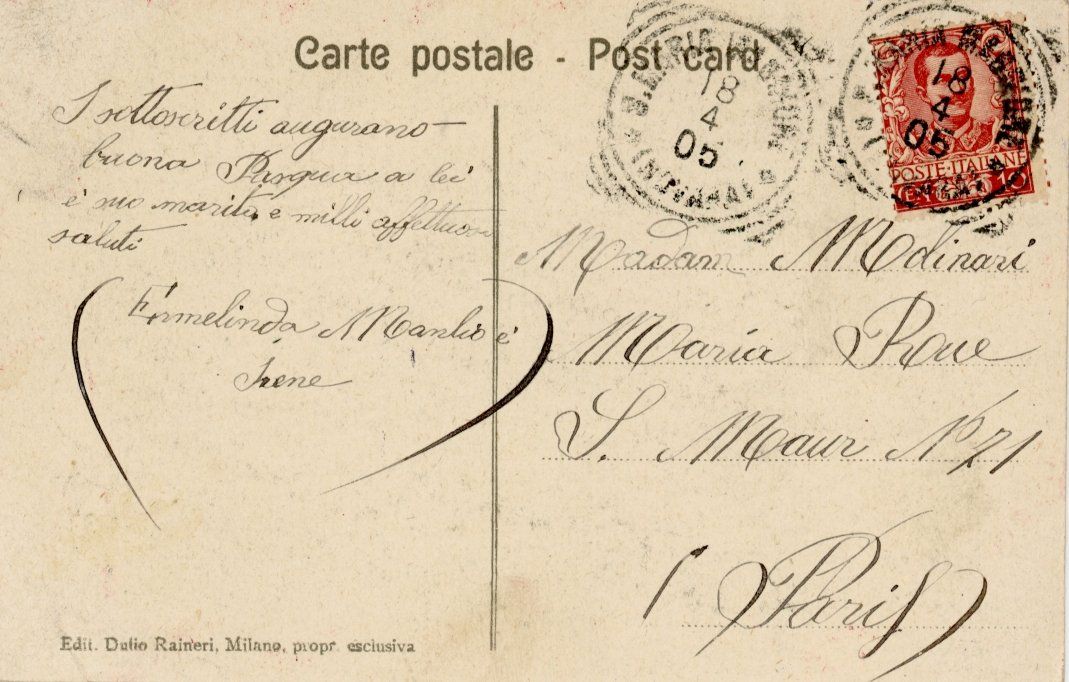 Carte postale - Post card
I sottoscritti augurano
buona Pasqua a lei
e suo marito, e milli affettuosi
saluti
(Ermelinda Manlio e
Irene)
18
4
05
18
4
05
POSTE·ITALIANE
Madam Molinari
Maria Rue
S. Maur No 71
(Paris)
Edit. Dulio Raineri, Milano, propr. esclusiva